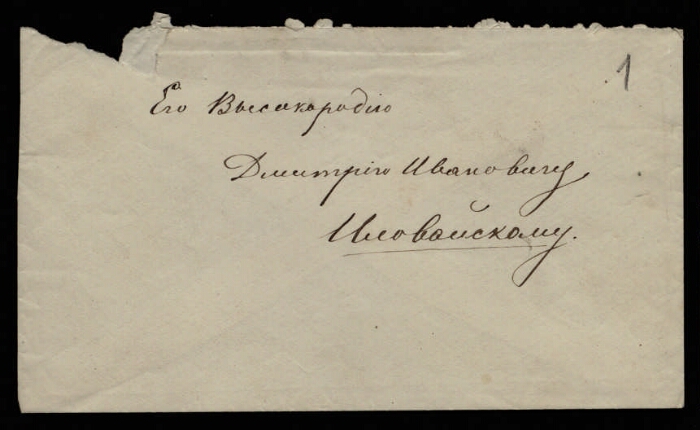 1
Его Высокородію
Дмитрію Ивановичу
Иловайскому.